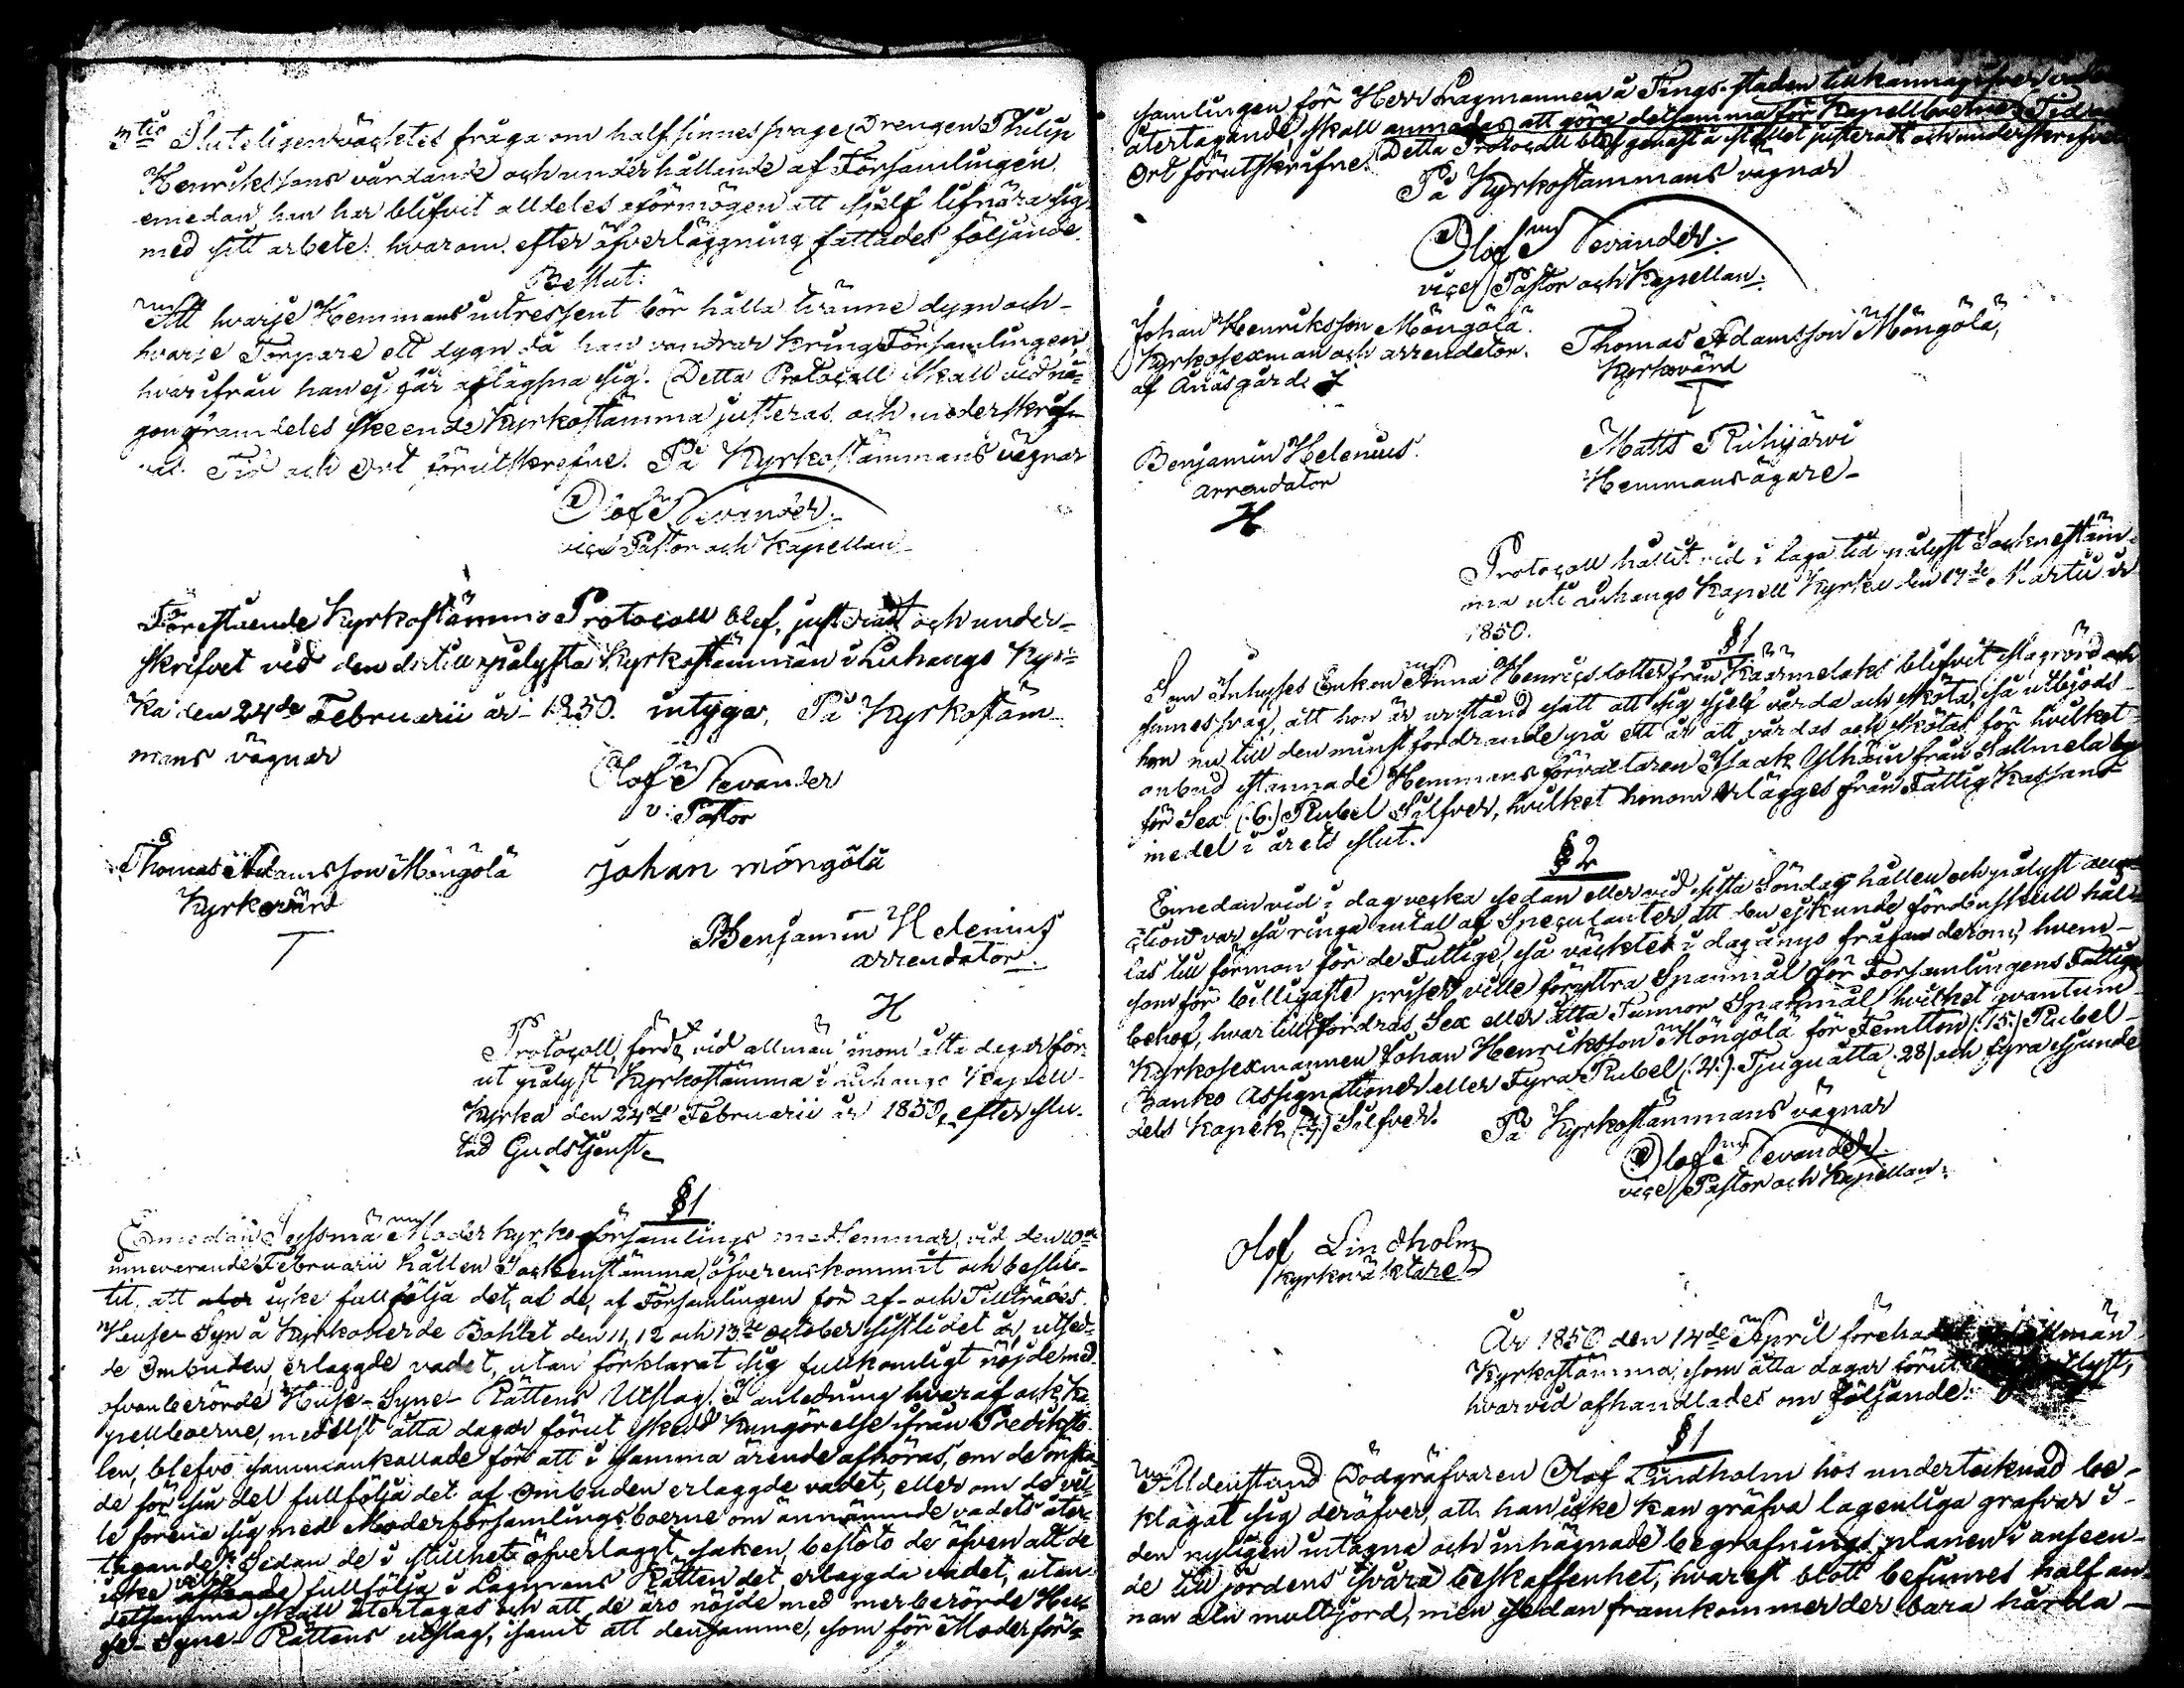 3tio Sluteligen väcktes fråga om halfsinnes svage Drengen Philip
Henrikssons vårdande och underhållande af Församlingen,
emedan han har blifvit alldeles oförmögen att sjelf lifnära sig
med sitt arbete: hvarom efter öfverläggning fattades följande.
Beslut:
Att hvarje Hemmans intressent bör hålla tvänne dygn och
hvarje Torpare ett dygn då han vandrar kring Församlingen,
hvarifrån han ej får aflägsna sig. Detta Protocoll skall vid nå-
gon framdeles skeende Kyrkostämma justeras och underskrif-
vas. Tid och Ort förutskrefne. På Kyrkostämmans vägnar
Olof Nevander.
vice Pastor och Kapellan
Förestående Kyrkostämmo Protocoll blef justeradt och under-
skrifvet vid den dertill pålysta Kyrkostämman i Luhango Kyr-
ka den 24de Februarii år 1850. intyga, På Kyrkostäm-
mans vägnar
Olof Nevander
v: Pastor
Thomas Adamsson Möngölä
Kyrkovärd
Johan möngölä
Benjamin Helenius
arrendator.
H
Protocoll, fördt vid allmän inom åtta dagar för-
ut pålyst Kyrkostämma i Luhango Kapell-
Kyrka den 24de Februarii år 1850, efter slu-
tad Gudstjenst.
§1
Emedan Sysmä Moderkyrko-församlings medlemmar, vid den 10de
innevarande Februarii hållen Sockenstämma, öfverenskommit och beslu-
tit, att icke fullfölja det, af de, af Församlingen för af- och Tillträdes
Huse-Syn å Kyrkoherde Bohlet den 11, 12 och 13de October sistlidet år, utsed-
de Ombuden, erlaggde vadet, utan förklarat sig fullkomligt nöjde med
ofvanberörde Huse-Syne-Rättens Utslag. I anledning hvaraf ock Ka-
pellboerne, medelst åtta dagar förut skedd kungörelse ifrån Prediksto-
len, blefvo sammankallade för att i samma ärende afhöras, om de önska-
de för sin del fullfölja det af Ombuden erlaggde vadet, eller om de vil-
le förena sig med Moderförsamlingsboerne om ännämnde vadets åter-
tagande? Sedan de i stillhet öfverlaggt saken, beslöto de äfven att de
icke velat fullfölja i Lagmans Rätten det erlaggda vadet, utan
detsamma skall återtagas och att de äro nöjde med merberörde Hu-
se-Syne-Rättens utslag, samt att densamme, som för Moderför-
samlingen för Herr Lagmannen å Tings-staden tillkännagifver vadets
återtagande, skall anmodas att göra detsamma för Kapellboerne. Tid och
Ort förutskrifne. Detta Protocoll blef genast å stället justeradt och underskrifvet
På Kyrkostämmans vägnar
Olof Nevander.
vice Pastor och Kapellan.
Johan Henriksson Möngölä.
Kyrkosexman och arrendator.
af Anäsgård
Thomas Adamsson Möngölä,
Kyrkovärd
Benjamin Helenius.
arrendator
H
Matts Riihijärvi
Hemmansägare
Protocoll hållit vid i laga tid pålyst Sockenstäm-
ma uti Luhango Kapell Kyrka den 17de Martii år
1850.
§1
Som Inhyses Enkan Anna Henricsdotter från Kaarmelaks blifvit slagrörd och
sinnessvag, att hon är urstånd satt att sig sjelf vårda och sköta, så utbjöds
hon nu till den minst fordrande på ett år att vårdas och skötas för hvilket
anbud stannade Hemmans förvaltaren Isaak Ylhäin från Sallmela by
för Sex (6.) Rubel Silfver, hvilket honom erlägges från Fattig kassans
medel i årets slut.
§2
Emedan vid i dag vecka sedan eller vid sista Söndag hållen och pålyst auc-
tion var så ringa antal af Speculanter att den ej kunde fördenskull hål-
las till förmon för de Fattige, så väcktes i dag ånyo frågan derom, hvem
som för billigaste priser ville försträ Spannmål för Församlingens Fattige
behof, hvartill fordras Sex eller åtta Tunnor Spannmål hvilket qvantum
Kyrkosexmannen Johan Henriksson Möngölä för Femtton (15.) Rubel
Banko Assignationer eller Fyra Rubel (4.) Tjuguåtta (28) och fyra sjunde
dels Kopek (4/7) Silfver.
På Kyrkostämmans vägnar
Olof Nevander.
vice Pastor och Kapellan.
Olof Lindholm
Kyrkväktare
År 1850 den 14de April förehades allmän
Kyrkostämma, som åtta dagar förut pålyst,
hvarvid afhandlades om följande:
§1
Aldenstund Dödgräfvaren Olof Lindholm hos undertecknad be-
klagat sig deröfver, att han icke kan gräfva lagenliga grafvar i
den nyligen intagna och inhägnade begrafnings planen i anseen-
de till jordens svåra beskaffenhet, hvarest blott befinnes half an-
nan aln mulljord, men sedan framkommer der bara hårda